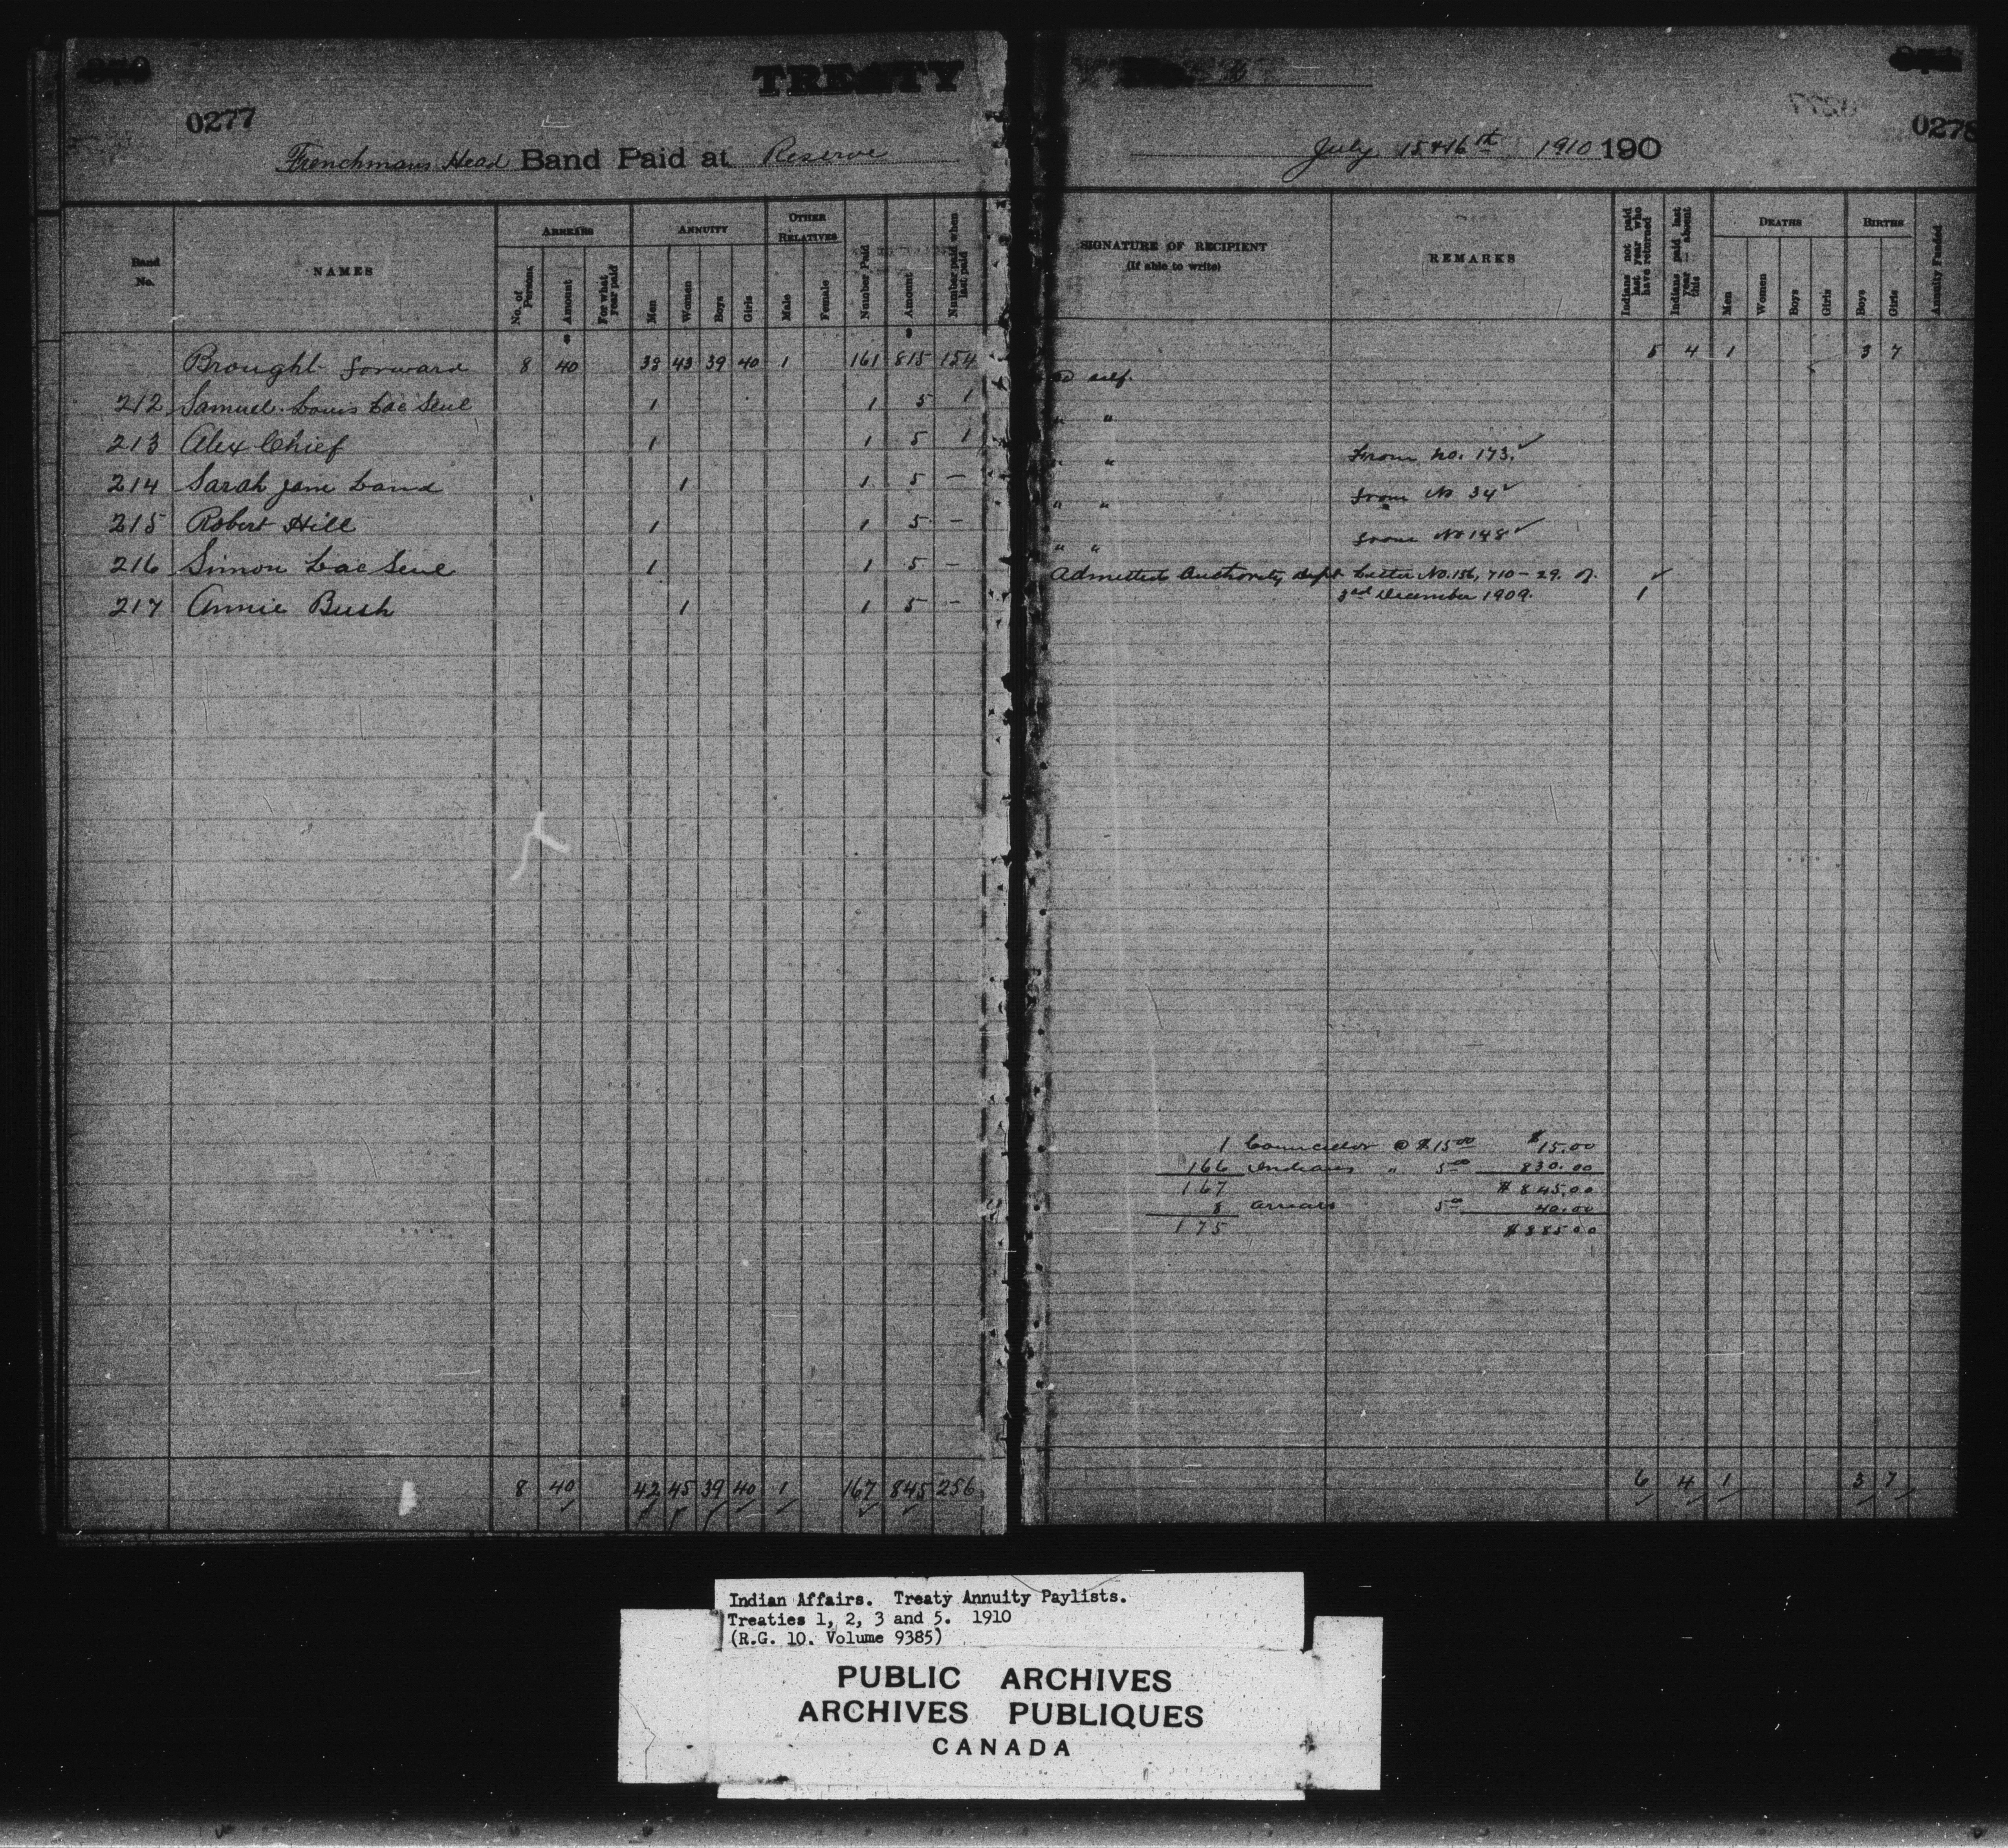 0277
TREATY
Frenchmans Head Band Paid at Reserve
Band No.
NAMES
ARREARS
No. of Persons
Amount
For what year paid
ANNUITY
Men
Women
Boys
Girls
OTHER RELATIVES
Male
Female
Number Paid
Amount
Number paid when last paid
Brought forward 8 40 38 43 39 40 1 161 815 154
212 Samuel Louis Lac Seul 1 1 5 1
213 Alex Chief 1 1 5 1
214 Sarah Jane Land 1 1 5 —
215 Robert Hill 1 1 5 —
216 Simon Lac Seul 1 1 5 —
217 Annie Bush 1 1 5 —
8 40 42 45 39 40 1 167 845 256
No.
0278
July 15 & 16th 1910 190
SIGNATURE OF RECIPIENT
(If able to write)
REMARKS
Indians not paid last year who have returned
Indians paid last year — absent this
DEATHS
Men
Women
Boys
Girls
BIRTHS
Boys
Girls
Annuity Funded
5 4 1 3 7
self.
" "
" From No. 173. ✓
" " from No 34 ✓
" " from No 148 ✓
Admitted Authority Dept Letter No. 156,710-29. of ✓
3rd December 1909. 1
1 Councillor @ $15.00 $15.00
166 Indians " 5.00 830.00
167 $845.00
8 arrears 5.00 40.00
175 $885.00
6 4 1 3 7
Indian Affairs. Treaty Annuity Paylists.
Treaties 1, 2, 3 and 5. 1910
(R.G. 10. Volume 9385)
PUBLIC ARCHIVES
ARCHIVES PUBLIQUES
CANADA